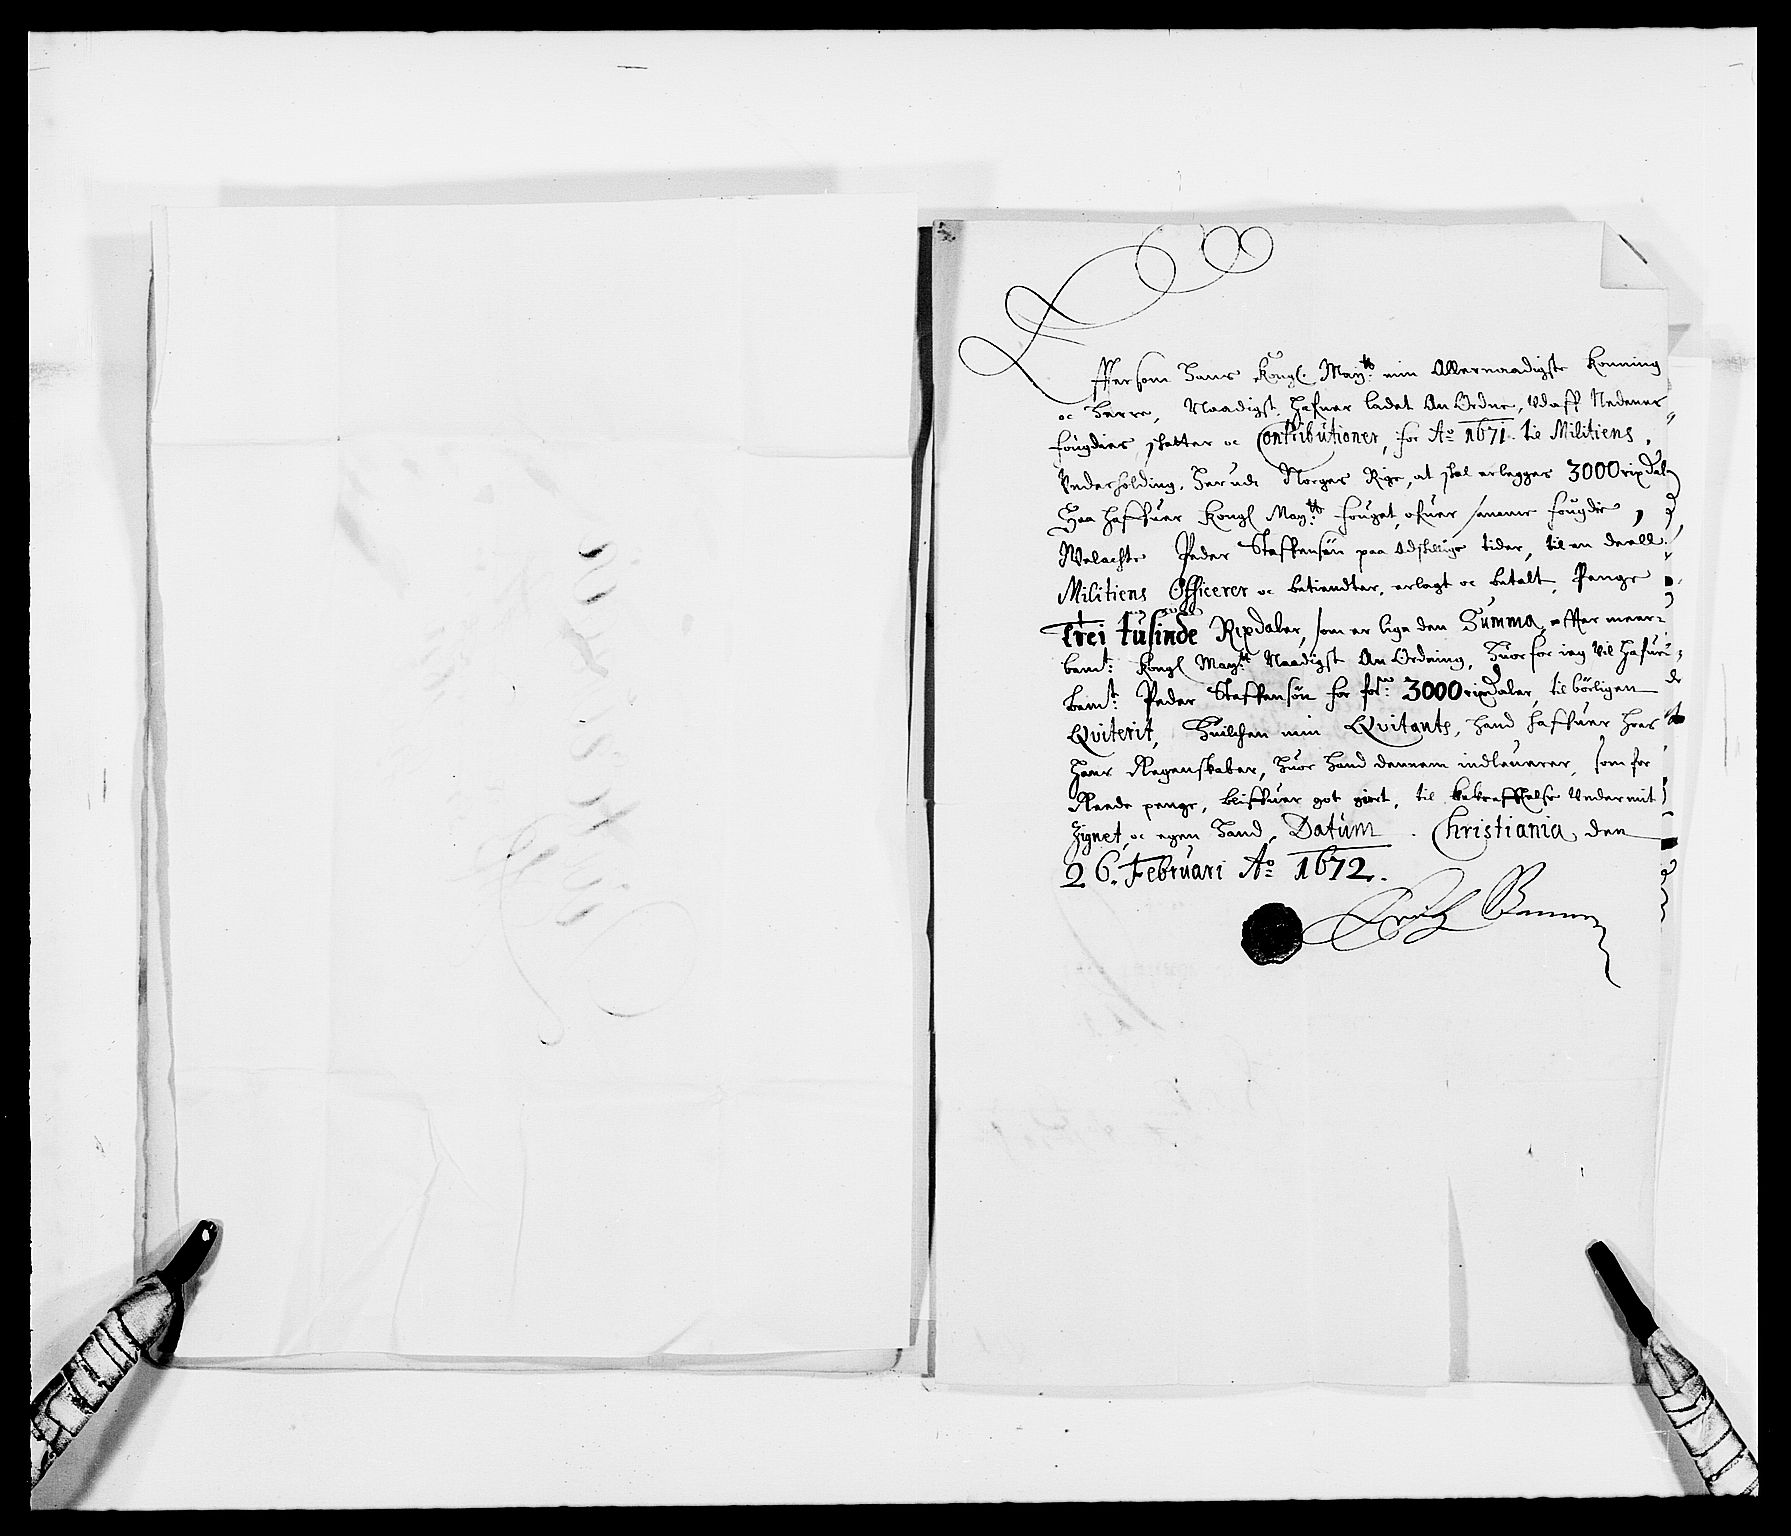 Effter som Hans Kongl. May:tts min Allernaadigste Konning
oc Herre, Naadigst hafuer ladet An Ordne, Vdaff Nedenes
fougderies skatter oc Contributioner, for A:o 1671. til Militiens
Vnderholding, her udi Norges Rige, at skal erlegges 3000 rixdaler
Saa haffuer Kongl May:tts fouget ofuer samme fougdrie,
Welachte Peder Steffensøn paa Adskillige tider, til en deell
Militiens Officerer oc betiendter, erlagt oc betalt, Penge
Trei tusinde Rixdaler, som er lige den Summa, effter meer-
bem:t Kongl May:tts Naadigst An Ordning, Huorfor ieg vil hafue
bem:t Peder Steffensøn for for:ne 3000 rixdaler, til børligen
Qviterit, Huilchen min Qvitants, hand haffuer hos
hans Regenskaber, huor hand dennem indleuerer, som for
Reede penge, bliffuer got giort, til bekrefftelse Under mit
Zignet, oc egen Haand, Datum Christiania, den
26. Februari A:o 1672.